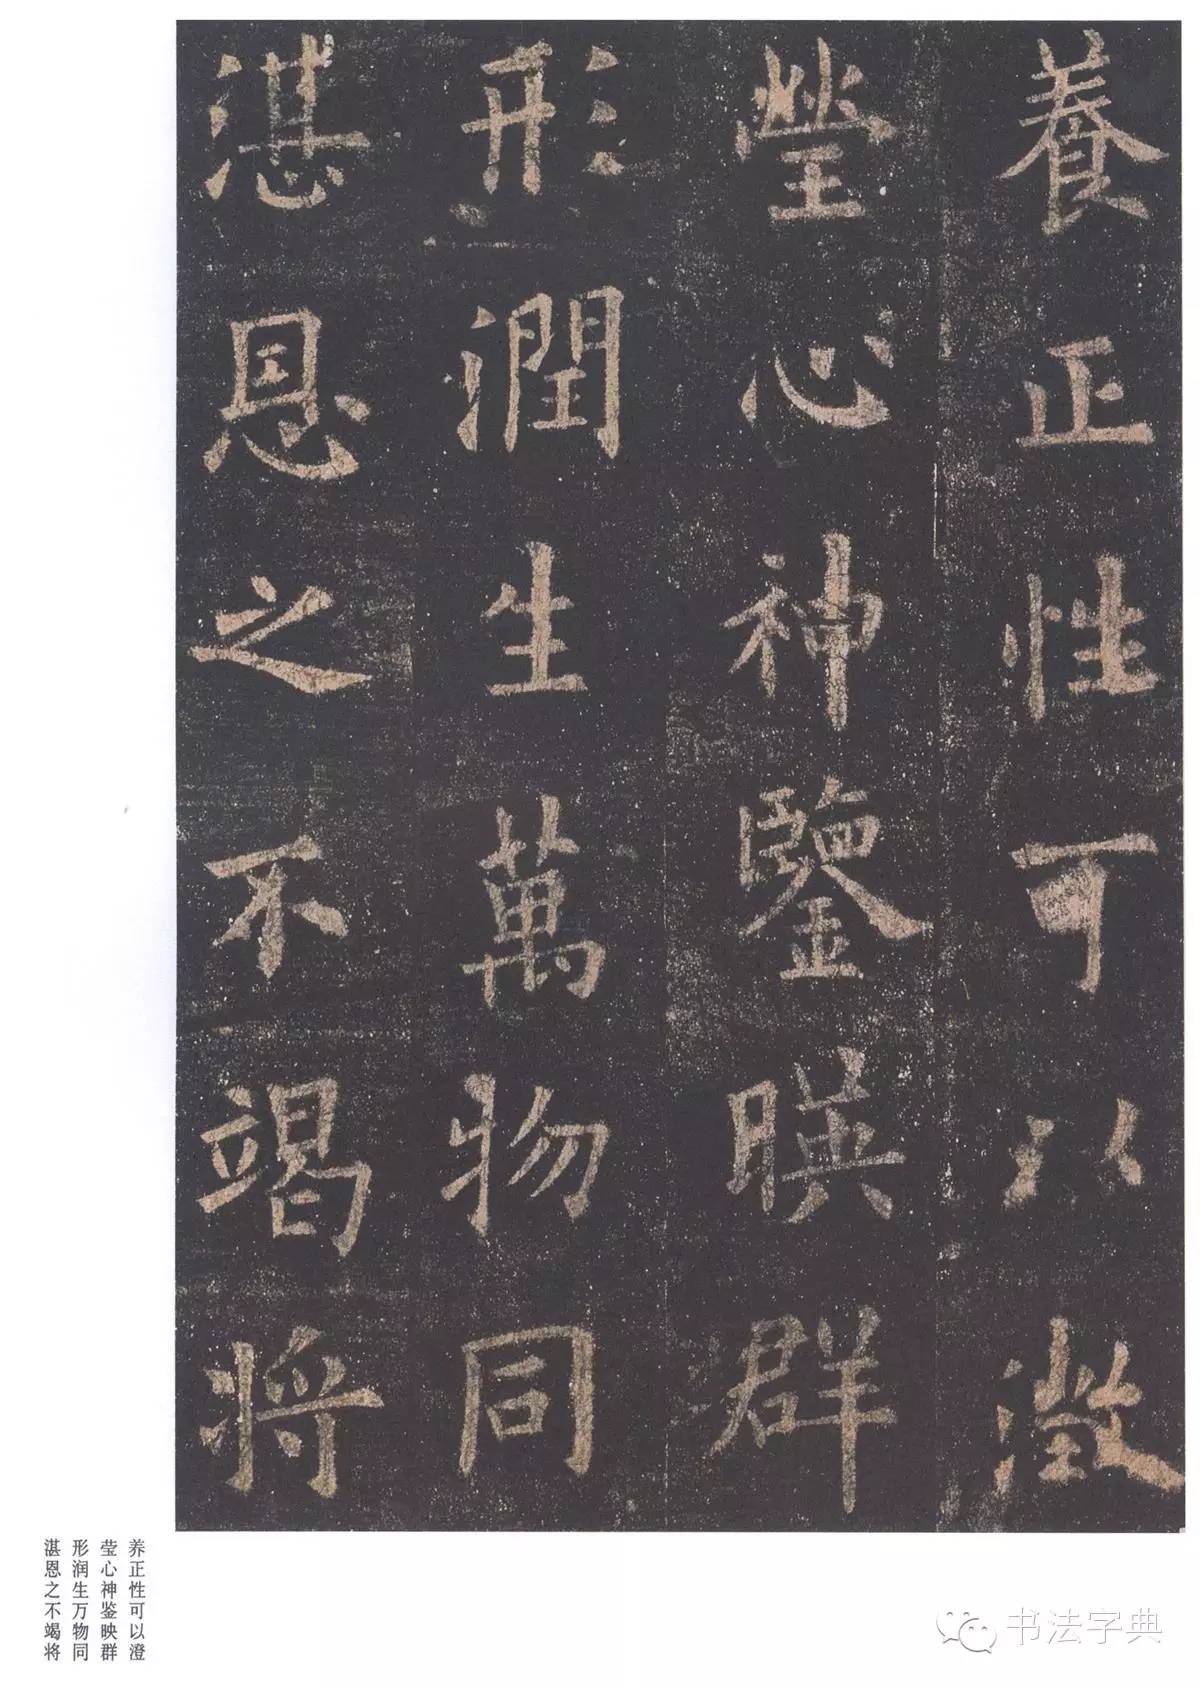 養正性可以澂
瑩心神鑒暎群
形潤生萬物同
湛恩之不竭将
养正性可以澄
莹心神鉴映群
形润生万物同
湛恩之不竭将
书法字典